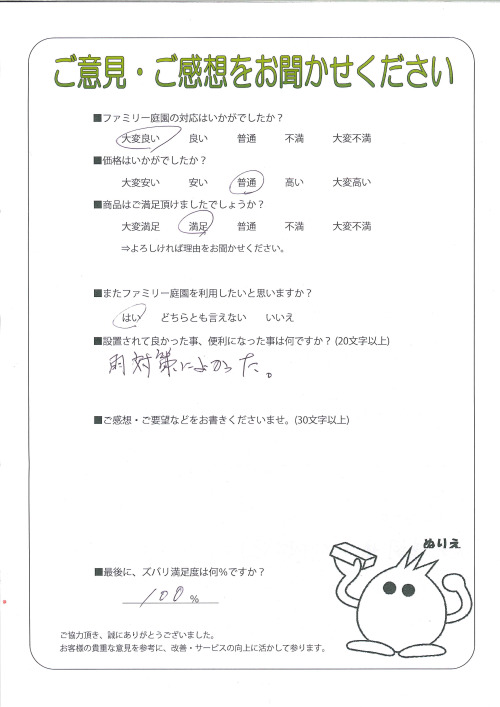 ご意見・ご感想をお聞かせください
■ファミリー庭園の対応はいかがでしたか？
大変良い 良い 普通 不満 大変不満
■価格はいかがでしたか？
大変安い 安い 普通 高い 大変高い
■商品はご満足頂けましたでしょうか？
大変満足 満足 普通 不満 大変不満
⇒よろしければ理由をお聞かせください。
■またファミリー庭園を利用したいと思いますか？
はい どちらとも言えない いいえ
■設置されて良かった事、便利になった事は何ですか？(20文字以上)
雨対策によかった。
■ご感想・ご要望などをお書きくださいませ。(30文字以上)
ぬりえ
■最後に、ズバリ満足度は何％ですか？
100％
ご協力頂き、誠にありがとうございました。
お客様の貴重な意見を参考に、改善・サービスの向上に活かして参ります。